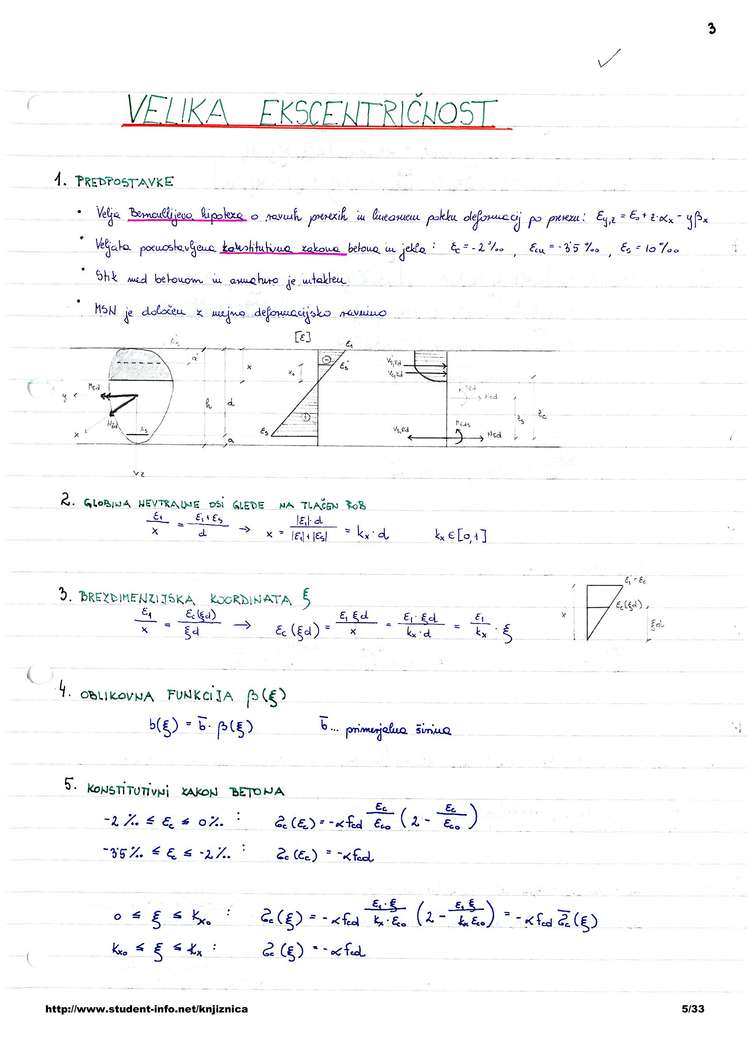 3
VELIKA EKSCENTRIČNOST
1. PREDPOSTAVKE
• Velja Bernoullijeva hipoteza o ravnih prerezih in linearnem poteku deformacij po prerezu: εy,z = ε0 + z·αx - yβx
• Veljata poenostavljena konstitutivna zakona betona in jekla: εc = -2‰, εcu = -3'5‰, εs = 10‰
• Stik med betonom in armaturo je intakten
• MSN je določen z mejno deformacijsko ravnino
[ε]
2. GLOBINA NEVTRALNE OSI GLEDE NA TLAČEN ROB
ε1/x = (ε1+εs)/d → x = |ε1|·d/(|ε1|+|εs|) = kx·d kx ∈ [0,1]
3. BREZDIMENZIJSKA KOORDINATA ξ
ε1/x = εc(ξd)/ξd → εc(ξd) = ε1 ξd/x = ε1·ξd/kx·d = ε1/kx · ξ
4. OBLIKOVNA FUNKCIJA β(ξ)
b(ξ) = b̄·β(ξ) b̄... primerjalna širina
5. KONSTITUTIVNI ZAKON BETONA
-2‰ ≤ εc ≤ 0‰ : σc(εc) = -αfcd εc/εco (2 - εc/εco)
-3'5‰ ≤ εc ≤ -2‰ : σc(εc) = -αfcd
0 ≤ ξ ≤ kxo : σc(ξ) = -αfcd ε1·ξ/kx·εco (2 - ε1 ξ/kx εco) = -αfcd σ̄c(ξ)
kxo ≤ ξ ≤ kx : σc(ξ) = -αfcd
http://www.student-info.net/knjiznica 5/33